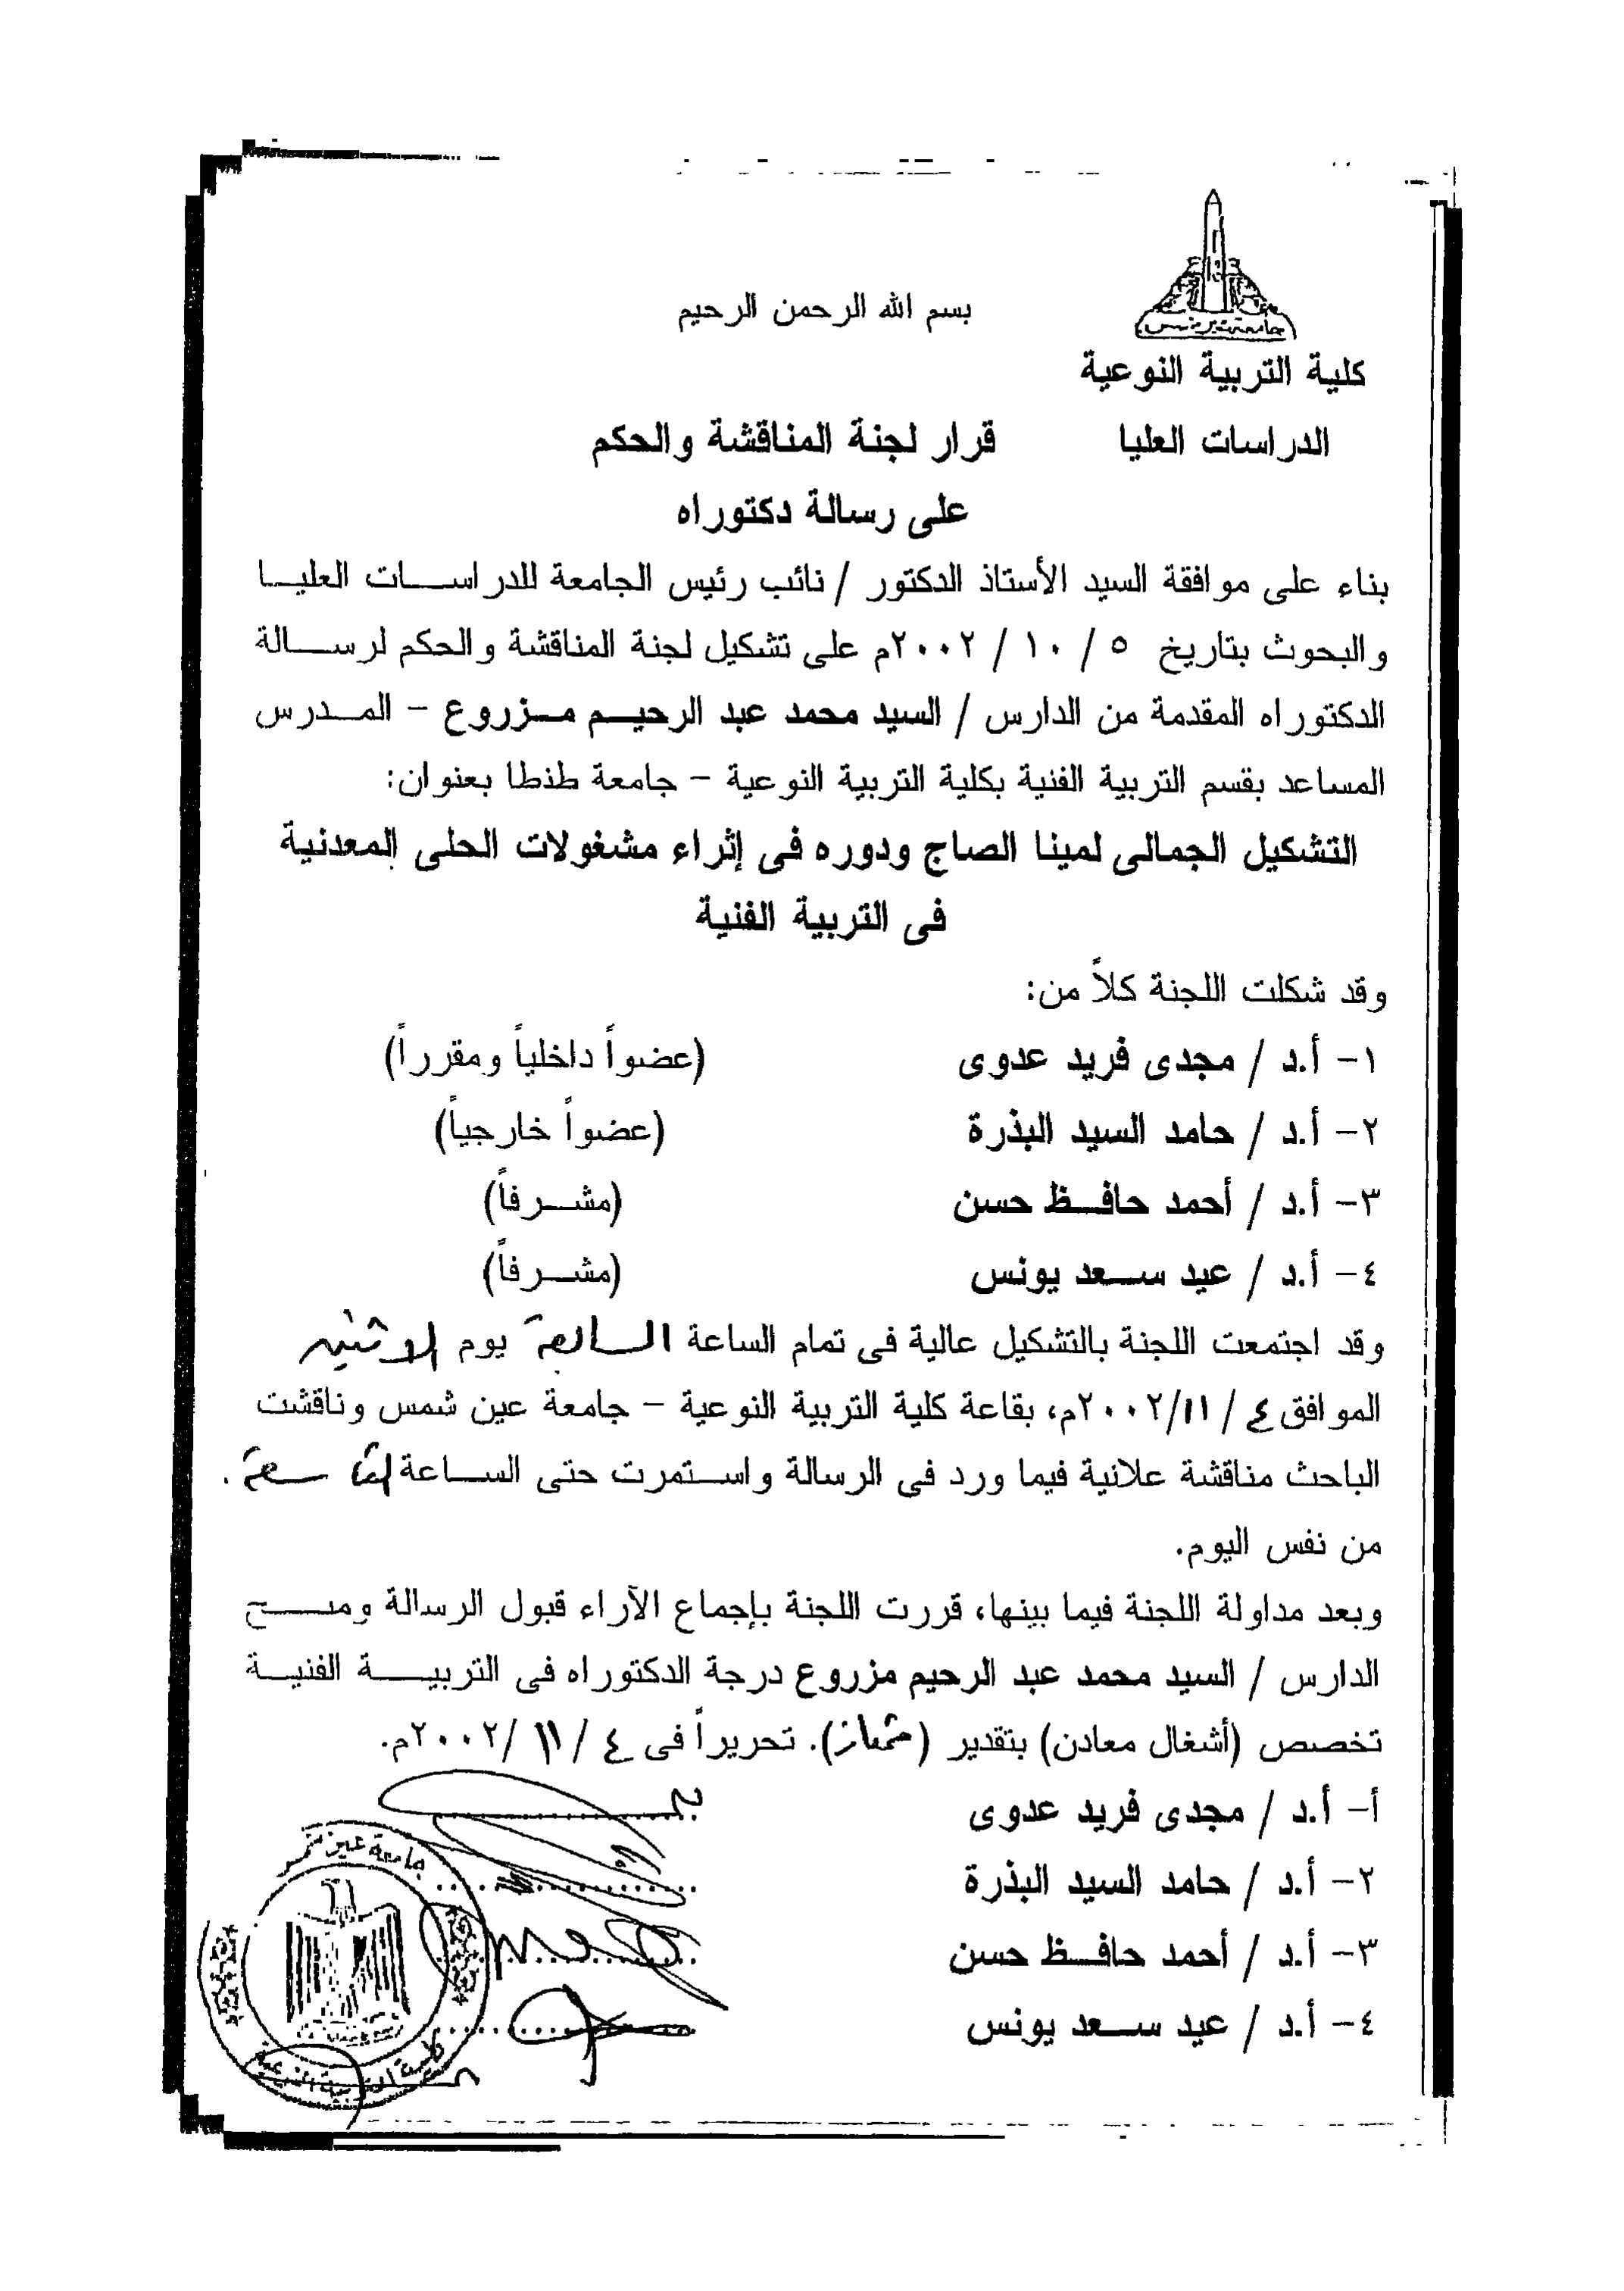 جامعة عين شمس
بسم الله الرحمن الرحيم
كلية التربية النوعية
الدراسات العليا
قرار لجنة المناقشة والحكم
على رسالة دكتوراه
بناء على موافقة السيد الأستاذ الدكتور / نائب رئيس الجامعة للدراسات العليا
والبحوث بتاريخ ٥ / ١٠ / ٢٠٠٢م على تشكيل لجنة المناقشة والحكم لرسالة
الدكتوراه المقدمة من الدارس / السيد محمد عبد الرحيم مزروع - المدرس
المساعد بقسم التربية الفنية بكلية التربية النوعية - جامعة طنطا بعنوان:
التشكيل الجمالى لمينا الصاج ودوره فى إثراء مشغولات الحلى المعدنية
فى التربية الفنية
وقد شكلت اللجنة كلاً من:
١- أ.د / مجدى فريد عدوى (عضواً داخلياً ومقرراً)
٢- أ.د / حامد السيد البذرة (عضواً خارجياً)
٣- أ.د / أحمد حافظ حسن (مشرفاً)
٤- أ.د / عيد سعد يونس (مشرفاً)
وقد اجتمعت اللجنة بالتشكيل عالية فى تمام الساعة يوم الاثنين
الموافق ٤ / ١١ / ٢٠٠٢م، بقاعة كلية التربية النوعية - جامعة عين شمس وناقشت
الباحث مناقشة علانية فيما ورد فى الرسالة واستمرت حتى الساعة .
من نفس اليوم.
وبعد مداولة اللجنة فيما بينها، قررت اللجنة بإجماع الآراء قبول الرسالة ومنح
الدارس / السيد محمد عبد الرحيم مزروع درجة الدكتوراه فى التربية الفنية
تخصص (أشغال معادن) بتقدير (ممتاز). تحريراً فى ٤ / ١١ / ٢٠٠٢م.
أ- أ.د / مجدى فريد عدوى
٢- أ.د / حامد السيد البذرة
٣- أ.د / أحمد حافظ حسن
٤- أ.د / عيد سعد يونس
جامعة عين شمس
كلية التربية النوعية